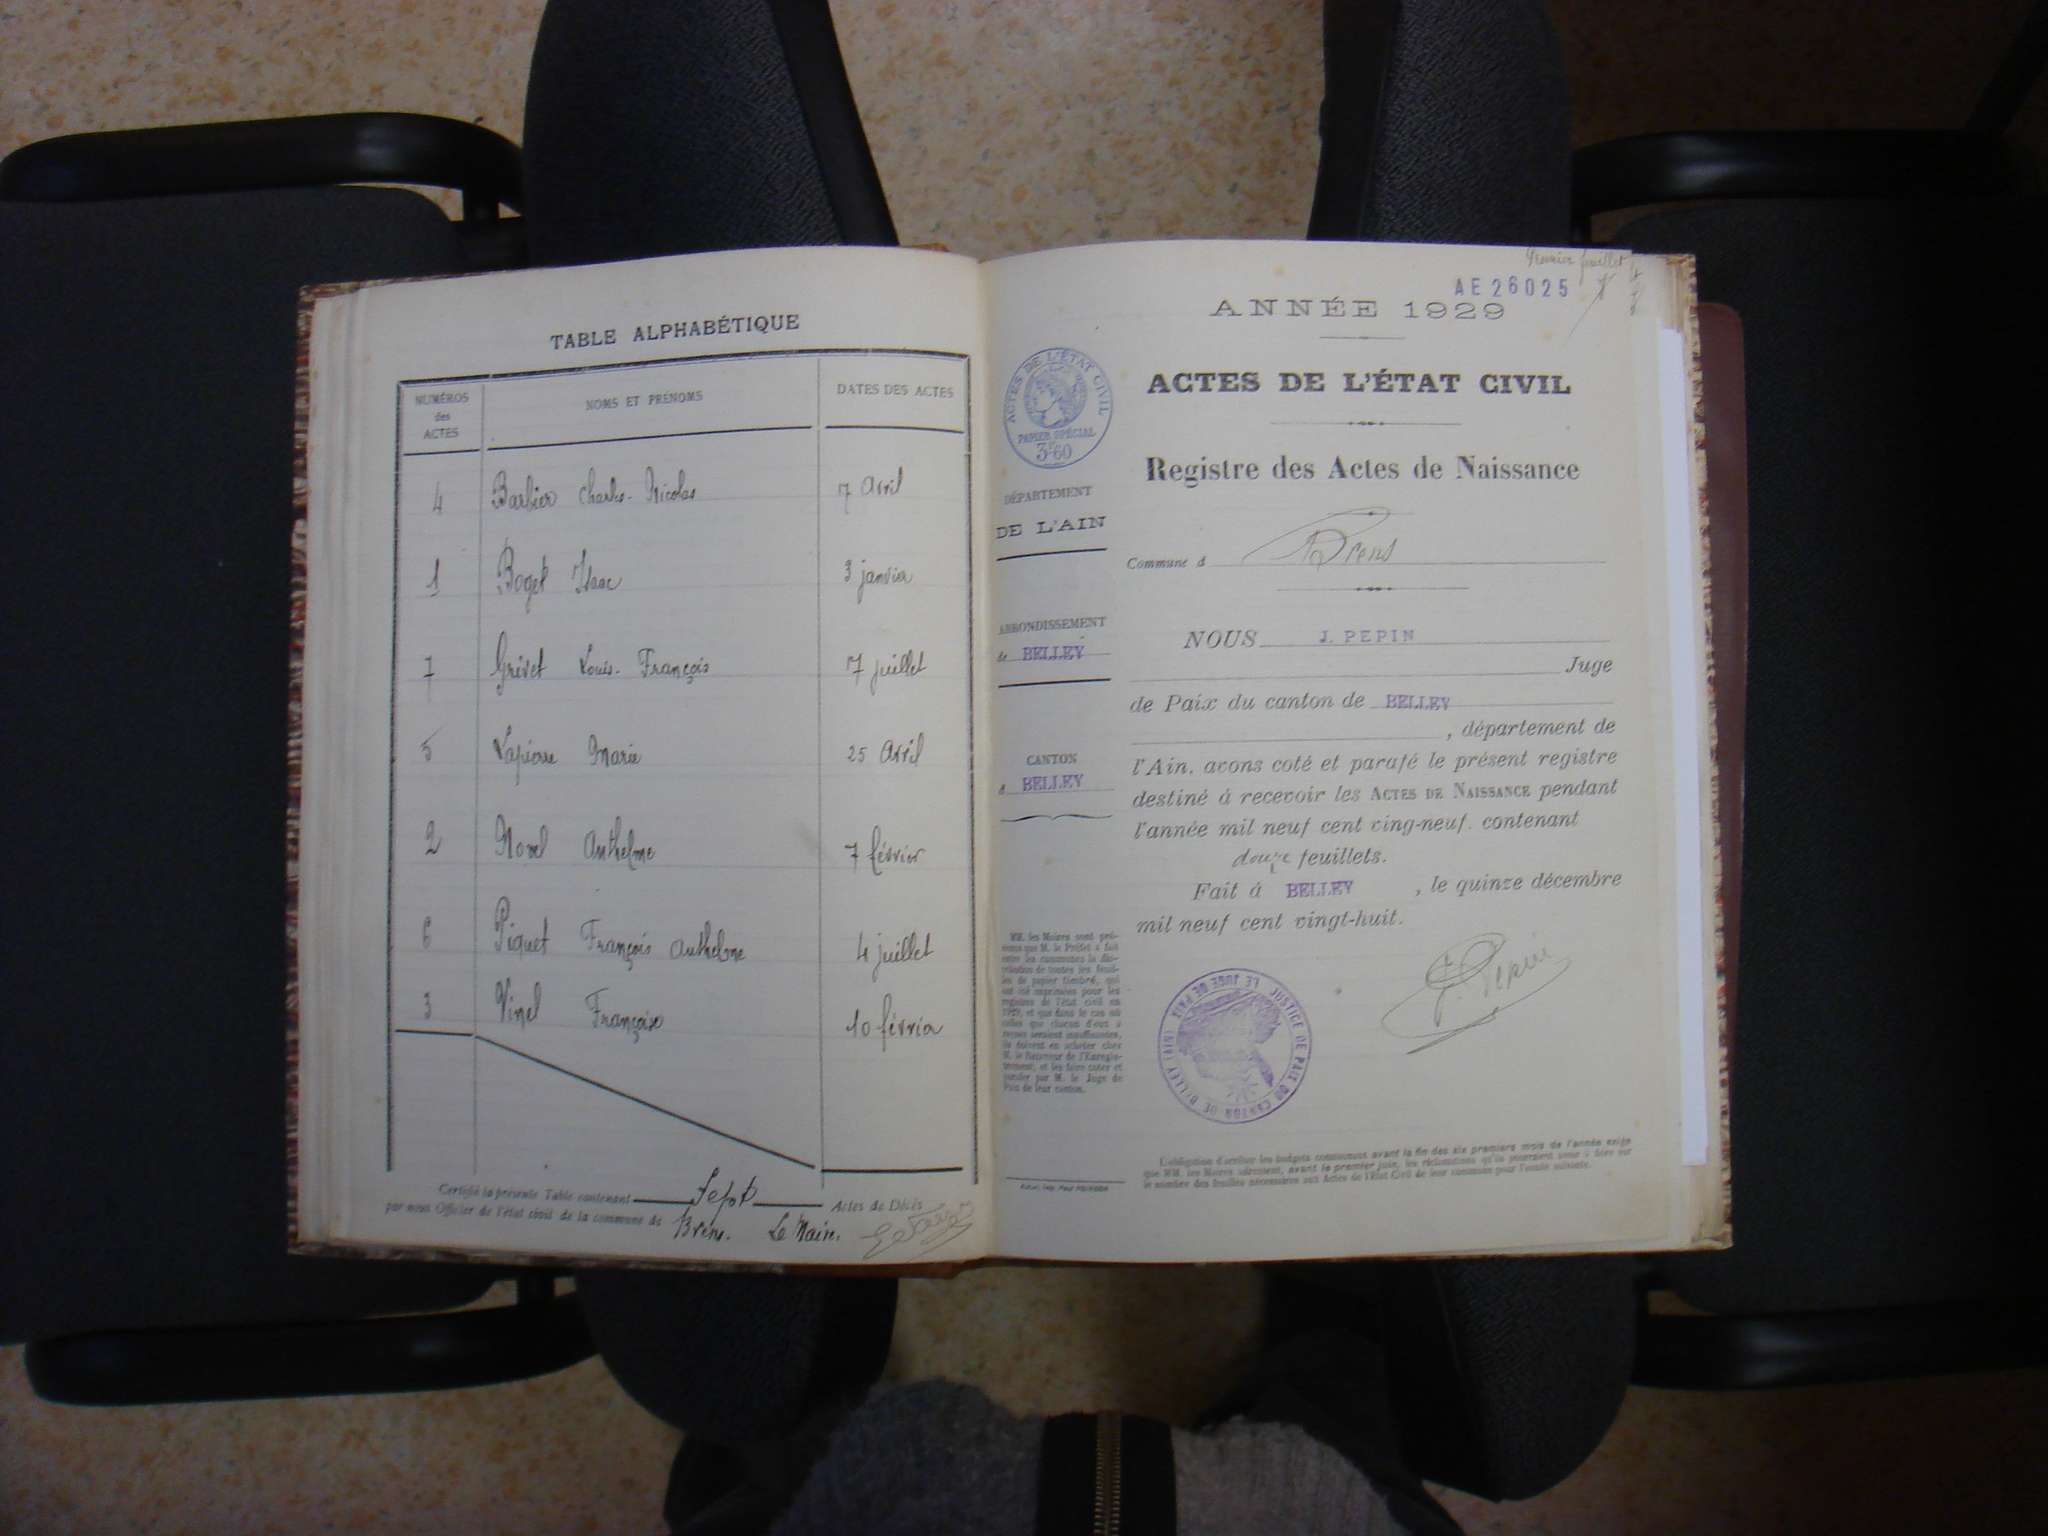 TABLE ALPHABÉTIQUE
NUMÉROS des ACTES NOMS ET PRÉNOMS DATES DES ACTES
4 Barbier Charles-Nicolas 7 Avril
1 Boget Isaac 3 janvier
7 Grivet Louis-François 17 juillet
5 Lapierre Marie 25 Avril
2 Morel Anthelme 7 février
6 Piquet François Anthelme 4 juillet
3 Vinel Françoise 10 février
Certifié la présente Table contenant Sept Actes de Décès
par nous Officier de l'état civil de la commune de Brens. Le Maire.
Premier feuillet
AE 26025
ANNÉE 1929
ACTES DE L'ÉTAT CIVIL
PAPIER SPÉCIAL
3F60
ACTES DE L'ÉTAT CIVIL
Registre des Actes de Naissance
DÉPARTEMENT
DE L'AIN
Commune d Brens
ARRONDISSEMENT
de BELLEY
NOUS J. PEPIN
Juge
de Paix du canton de BELLEY
, département de
CANTON
d BELLEY
l'Ain, avons coté et parafé le présent registre
destiné à recevoir les ACTES DE NAISSANCE pendant
l'année mil neuf cent ving-neuf, contenant
douze feuillets.
Fait à BELLEY , le quinze décembre
mil neuf cent vingt-huit.
J. Pepin
MM. les Maires sont pré-
venus que M. le Préfet a fait
entre les communes la dis-
tribution de toutes les feuil-
les de papier timbré, qui
ont été imprimées pour les
registres de l'état civil en
1929, et que dans le cas où
celles que chacun d'eux a
reçues seraient insuffisantes,
ils doivent en acheter chez
M. le Receveur de l'Enregis-
trement, et les faire coter et
parafer par M. le Juge de
Paix de leur canton.
JUSTICE DE PAIX DU CANTON DE BELLEY (AIN) LE JUGE DE PAIX
L'obligation d'arrêter les budgets communaux avant la fin des six premiers mois de l'année exige
que MM. les Maires adressent, avant le premier juin, les réclamations qu'ils pourraient avoir à faire sur
le nombre des feuilles nécessaires aux Actes de l'État Civil de leur commune pour l'année suivante.